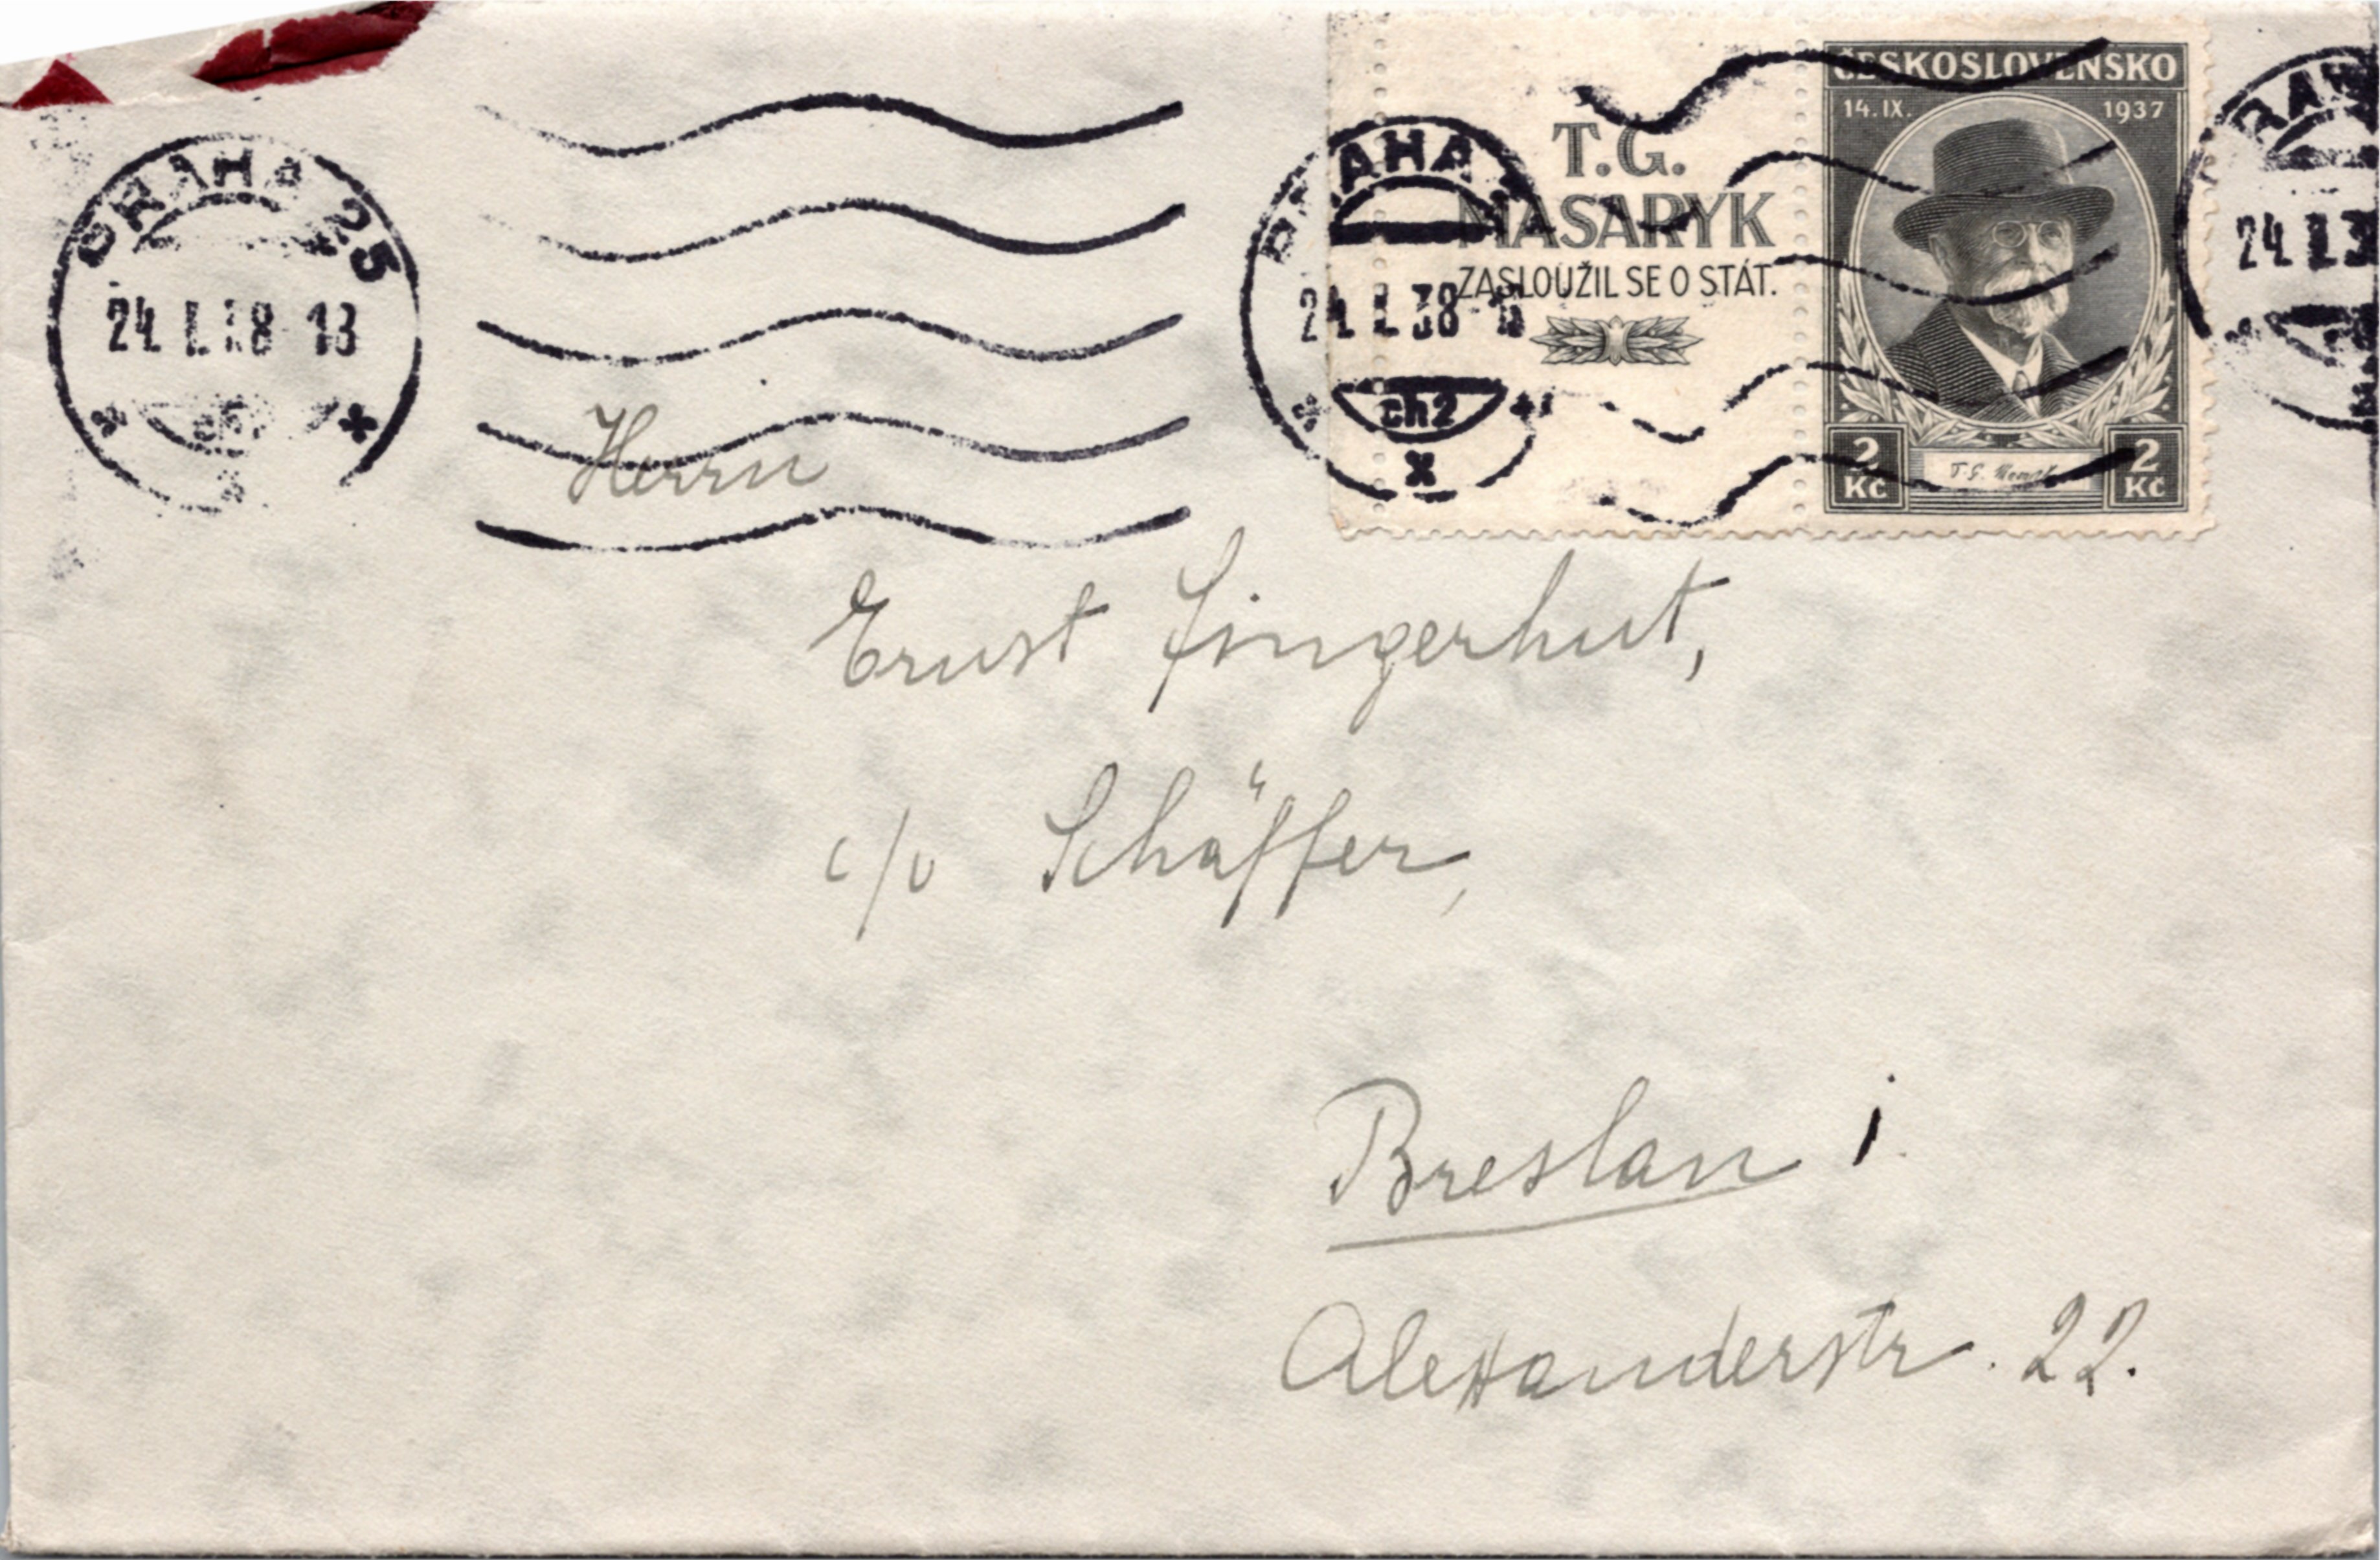 PRAHA 25
24. I. 38 - 13
PRAHA
24. I. 38
ch2
x
T.G.
MASARYK
ZASLOUŽIL SE O STÁT.
ČESKOSLOVENSKO
14. IX. 1937
2 Kč
2 Kč
24. I. 3
Herrn
Ernst Fingerhut,
c/o Schäffer,
Breslau 1
Alexanderstr. 22.